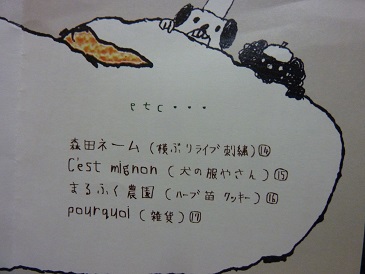 etc・・・
森田ネーム(横ぶりライブ刺繍)⑭
C'est mignon(犬の服やさん)⑮
まるふく農園(ハーブ苗 クッキー)⑯
pourquoi(雑貨)⑰